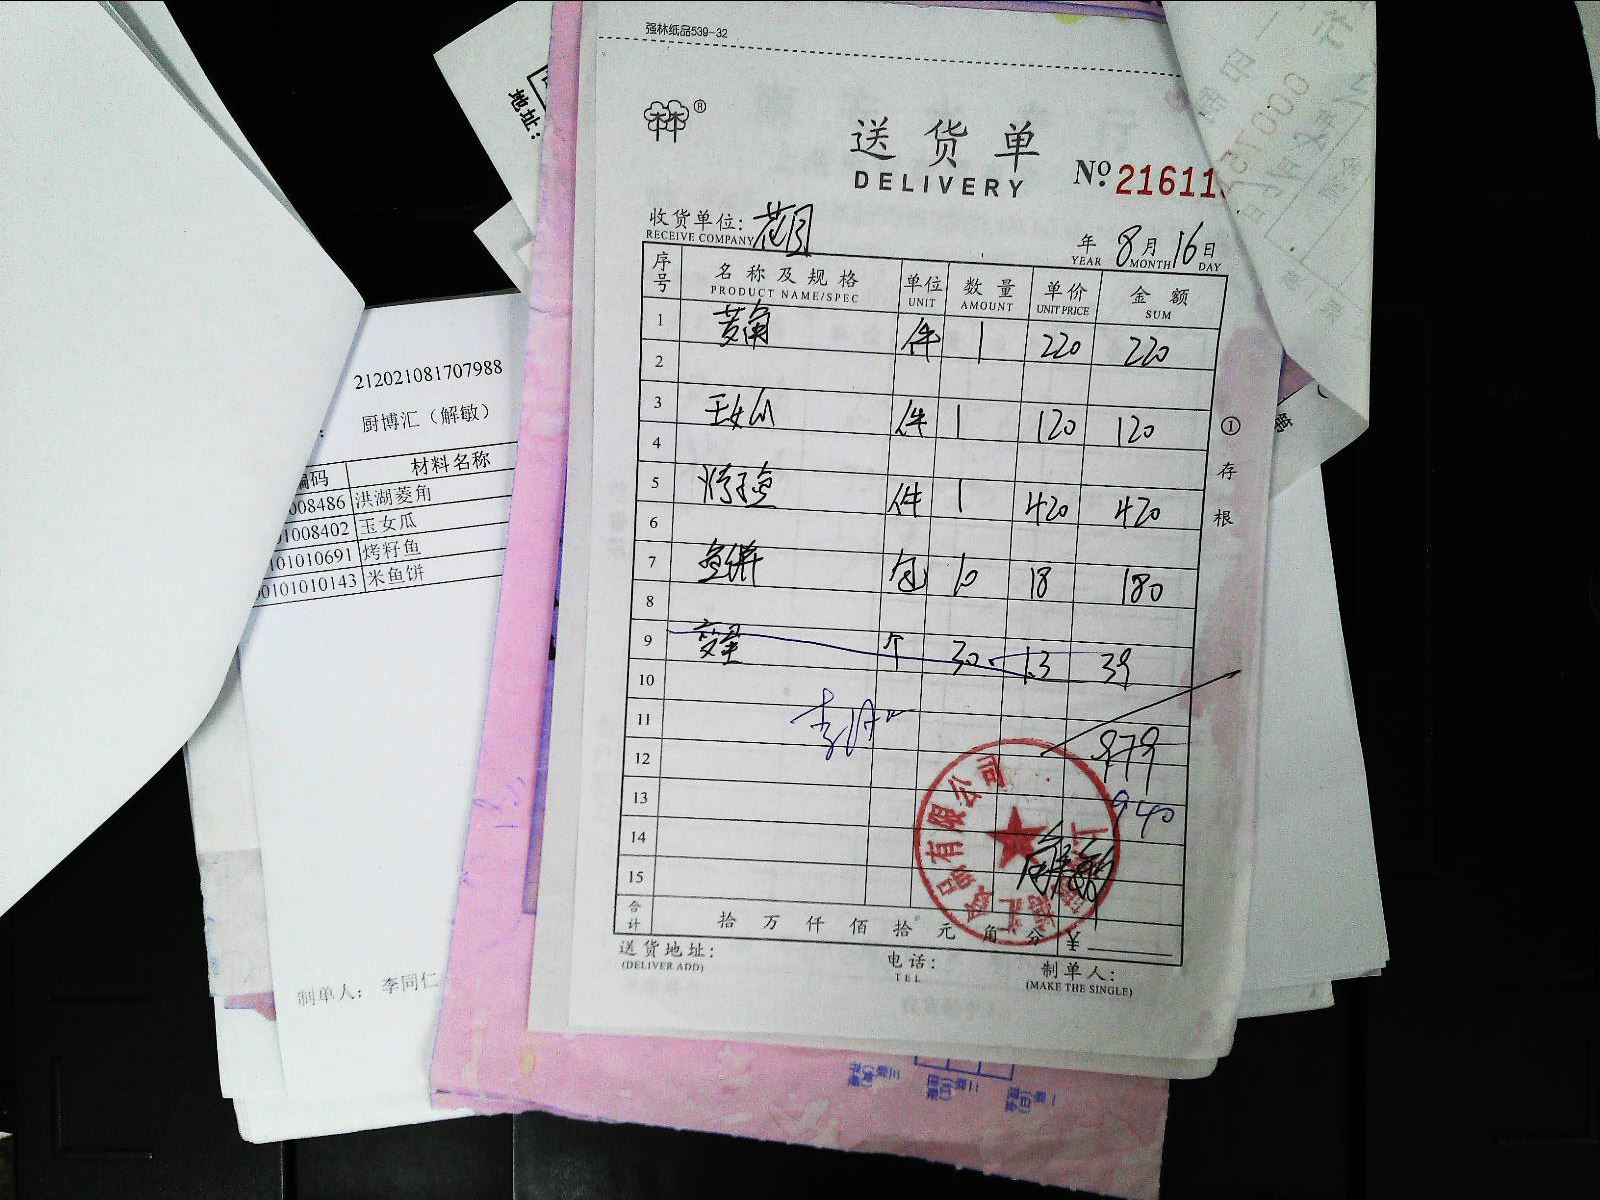 强林纸品539-32
地址:
林林®
送货单
DELIVERY
No. 21611
收货单位: 花月
RECEIVE COMPANY
年 8月16日
YEAR MONTH DAY
序号 名称及规格 单位 数量 单价 金额
PRODUCT NAME/SPEC UNIT AMOUNT UNIT PRICE SUM
1 菱角 件 1 220 220
2
3 玉女瓜 件 1 120 120
4
5 烤子鱼 件 1 420 420
6
7 鱼饼 包 10 18 180
8
9 个 30 1.3 39
10
11
12 979
13 940
14 解敏
15
合计 拾万仟佰拾元角分 ¥
送货地址: 电话: 制单人:
(DELIVER ADD) TEL (MAKE THE SINGLE)
①存根
品有限公司
212021081707988
厨博汇（解敏）
编码 材料名称
008486 洪湖菱角
01008402 玉女瓜
101010691 烤籽鱼
00101010143 米鱼饼
制单人: 李同仁